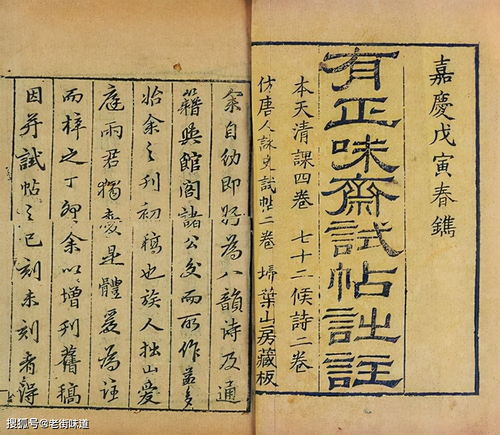 嘉慶戊寅春鐫
有正味齋試帖詩註
本天清課四卷 七十二候詩二卷
仿唐人詠史試帖二卷 掃葉山房藏板
余自幼即好為八韻詩及通
籍與館閣諸公交而所作益多
始余之刊初稿也族人拙山愛
庭雨君獨愛是體爰為註
而梓之丁卯余以增刊舊稿
因并試帖之已刻未刻者得
搜狐号@老街味道